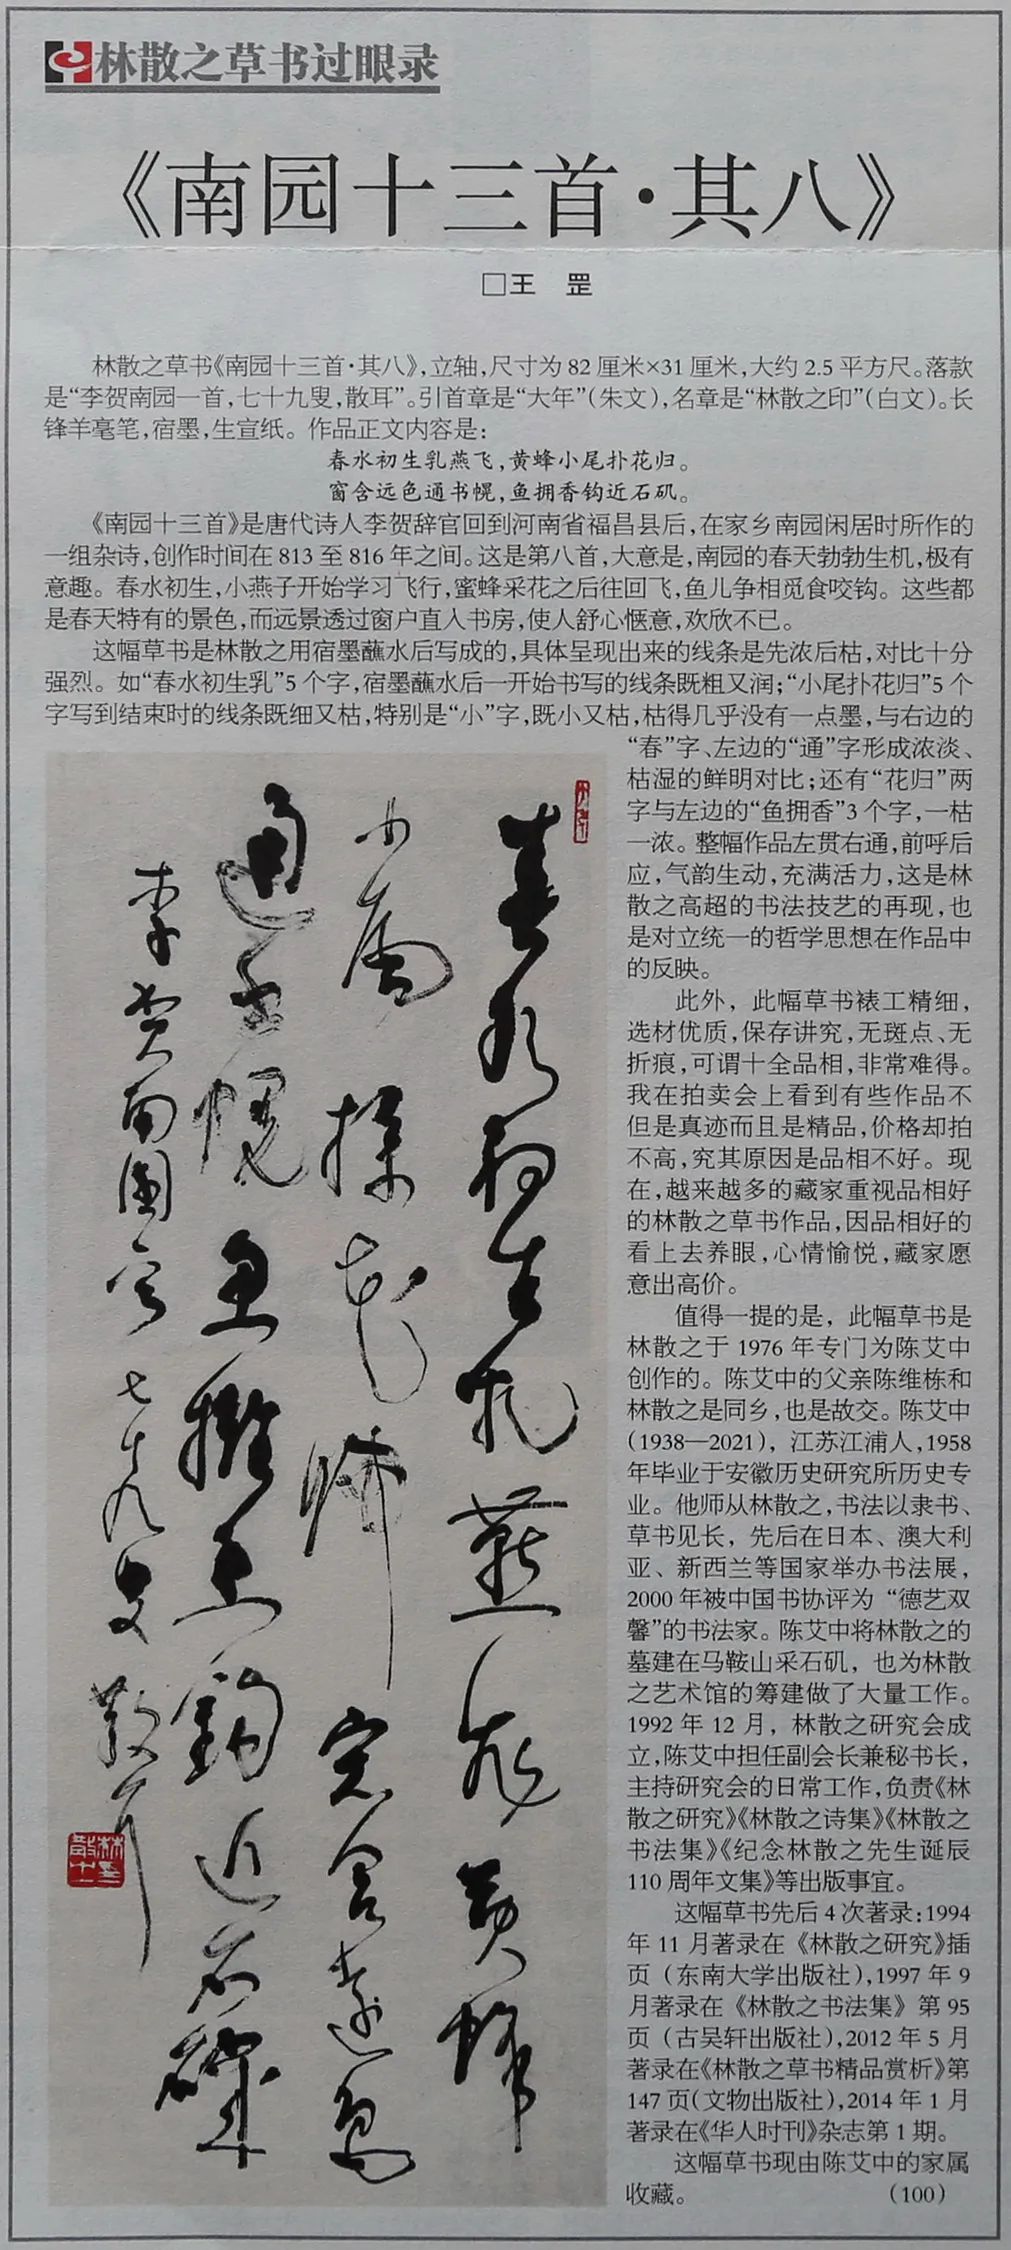 林散之草书过眼录
《南园十三首·其八》
□王 罡
林散之草书《南园十三首·其八》，立轴，尺寸为 82 厘米×31 厘米，大约 2.5 平方尺。落款
是“李贺南园一首，七十九叟，散耳”。引首章是“大年”（朱文），名章是“林散之印”（白文）。长
锋羊毫笔，宿墨，生宣纸。作品正文内容是：
春水初生乳燕飞，黄蜂小尾扑花归。
窗含远色通书幌，鱼拥香钩近石矶。
《南园十三首》是唐代诗人李贺辞官回到河南省福昌县后，在家乡南园闲居时所作的
一组杂诗，创作时间在 813 至 816 年之间。这是第八首，大意是，南园的春天勃勃生机，极有
意趣。春水初生，小燕子开始学习飞行，蜜蜂采花之后往回飞，鱼儿争相觅食咬钩。这些都
是春天特有的景色，而远景透过窗户直入书房，使人舒心惬意，欢欣不已。
这幅草书是林散之用宿墨蘸水后写成的，具体呈现出来的线条是先浓后枯，对比十分
强烈。如“春水初生乳”5 个字，宿墨蘸水后一开始书写的线条既粗又润；“小尾扑花归”5 个
字写到结束时的线条既细又枯，特别是“小”字，既小又枯，枯得几乎没有一点墨，与右边的
“春”字、左边的“通”字形成浓淡、
枯湿的鲜明对比；还有“花归”两
字与左边的“鱼拥香”3 个字，一枯
一浓。整幅作品左贯右通，前呼后
应，气韵生动，充满活力，这是林
散之高超的书法技艺的再现，也
是对立统一的哲学思想在作品中
的反映。
此外，此幅草书裱工精细，
选材优质，保存讲究，无斑点、无
折痕，可谓十全品相，非常难得。
我在拍卖会上看到有些作品不
但是真迹而且是精品，价格却拍
不高，究其原因是品相不好。现
在，越来越多的藏家重视品相好
的林散之草书作品，因品相好的
看上去养眼，心情愉悦，藏家愿
意出高价。
值得一提的是，此幅草书是
林散之于 1976 年专门为陈艾中
创作的。陈艾中的父亲陈维栋和
林散之是同乡，也是故交。陈艾中
（1938—2021），江苏江浦人，1958
年毕业于安徽历史研究所历史专
业。他师从林散之，书法以隶书、
草书见长，先后在日本、澳大利
亚、新西兰等国家举办书法展，
2000 年被中国书协评为“德艺双
馨”的书法家。陈艾中将林散之的
墓建在马鞍山采石矶，也为林散
之艺术馆的筹建做了大量工作。
1992 年 12 月，林散之研究会成
立，陈艾中担任副会长兼秘书长，
主持研究会的日常工作，负责《林
散之研究》《林散之诗集》《林散之
书法集》《纪念林散之先生诞辰
110 周年文集》等出版事宜。
这幅草书先后 4 次著录：1994
年 11 月著录在《林散之研究》插
页（东南大学出版社），1997 年 9
月著录在《林散之书法集》第 95
页（古吴轩出版社），2012 年 5 月
著录在《林散之草书精品赏析》第
147 页（文物出版社），2014 年 1 月
著录在《华人时刊》杂志第 1 期。
这幅草书现由陈艾中的家属
收藏。 （100）
大年
春水初生乳燕飞黄蜂
小尾扑花归窗含远色
通书幌鱼拥香钩近石矶
李贺南园一首七十九叟散耳
林散之印